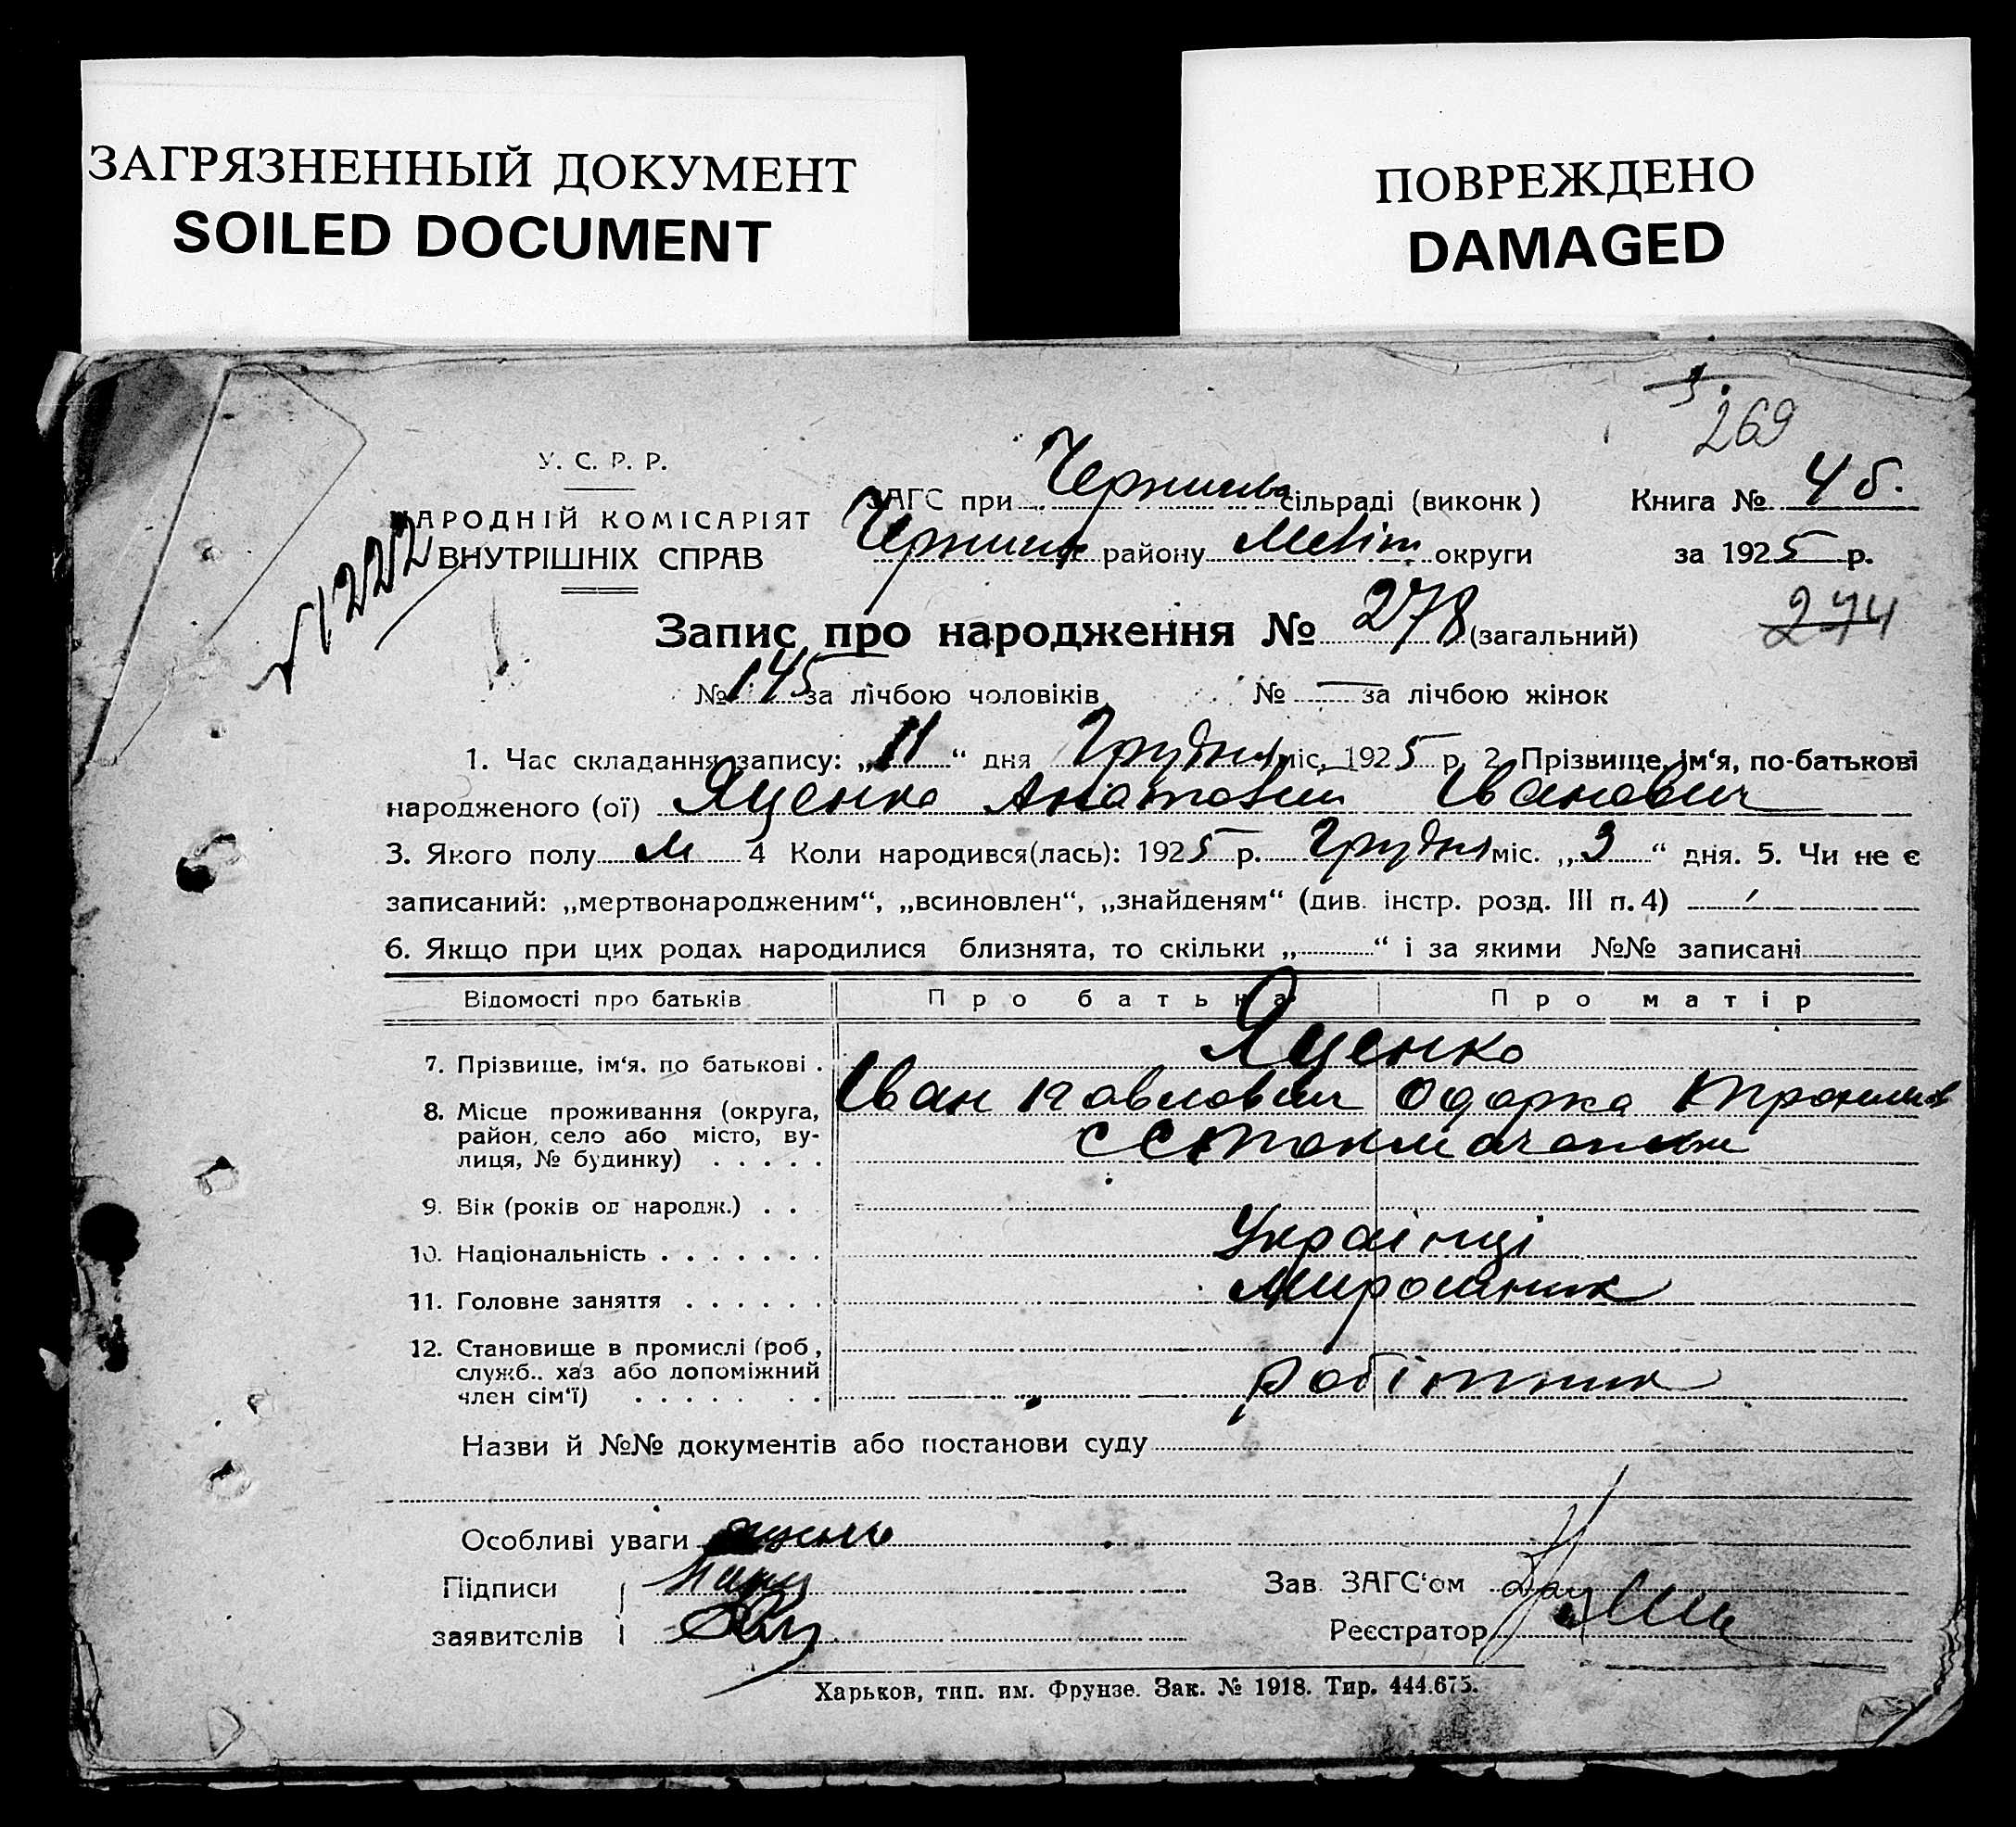 ЗАГРЯЗНЕННЫЙ ДОКУМЕНТ
SOILED DOCUMENT
ПОВРЕЖДЕНО
DAMAGED
269
У. С. Р. Р.
НАРОДНІЙ КОМІСАРІЯТ
ВНУТРІШНІХ СПРАВ
1222
ЗАГС при сільраді (виконк)
району Меліт округи
Книга № 4б.
за 1925 р.
274
Запис про народження № 278 (загальний)
№ 145 за лічбою чоловіків № — за лічбою жінок
1. Час складання запису: „11“ дня Грудня міс, 1925 р. 2. Прізвище, ім‘я, по-батькові
народженого (ої) Яценко Анатолій Іванович
3. Якого полу м 4 Коли народився(лась): 1925 р. Грудня міс. „3“ дня. 5. Чи не є
записаний: „мертвонародженим“, „всиновлен“, „знайденям“ (див. інстр. розд. III п. 4)
6. Якщо при цих родах народилися близнята, то скільки „ “ і за якими №№ записані
Відомості про батьків Про батька Про матір
7. Прізвище, ім‘я, по батькові . Яценко
Іван Павлович Одарка
8. Місце проживання (округа,
район, село або місто, ву-
лиця, № будинку) . . . . .
9. Вік (років од народж.) . .
10. Національність . . . . . . . Українці
11. Головне заняття . . . . . . Мирошник
12. Становище в промислі (роб,
служб.. хаз або допоміжний
член сім‘ї) . . . . . . . робітник
Назви й №№ документів або постанови суду
Особливі уваги
Підписи
заявителів
Зав. ЗАГС‘ом
Реєстратор
Харьков, тип. им. Фрунзе. Зак. № 1918. Тир. 444.675.